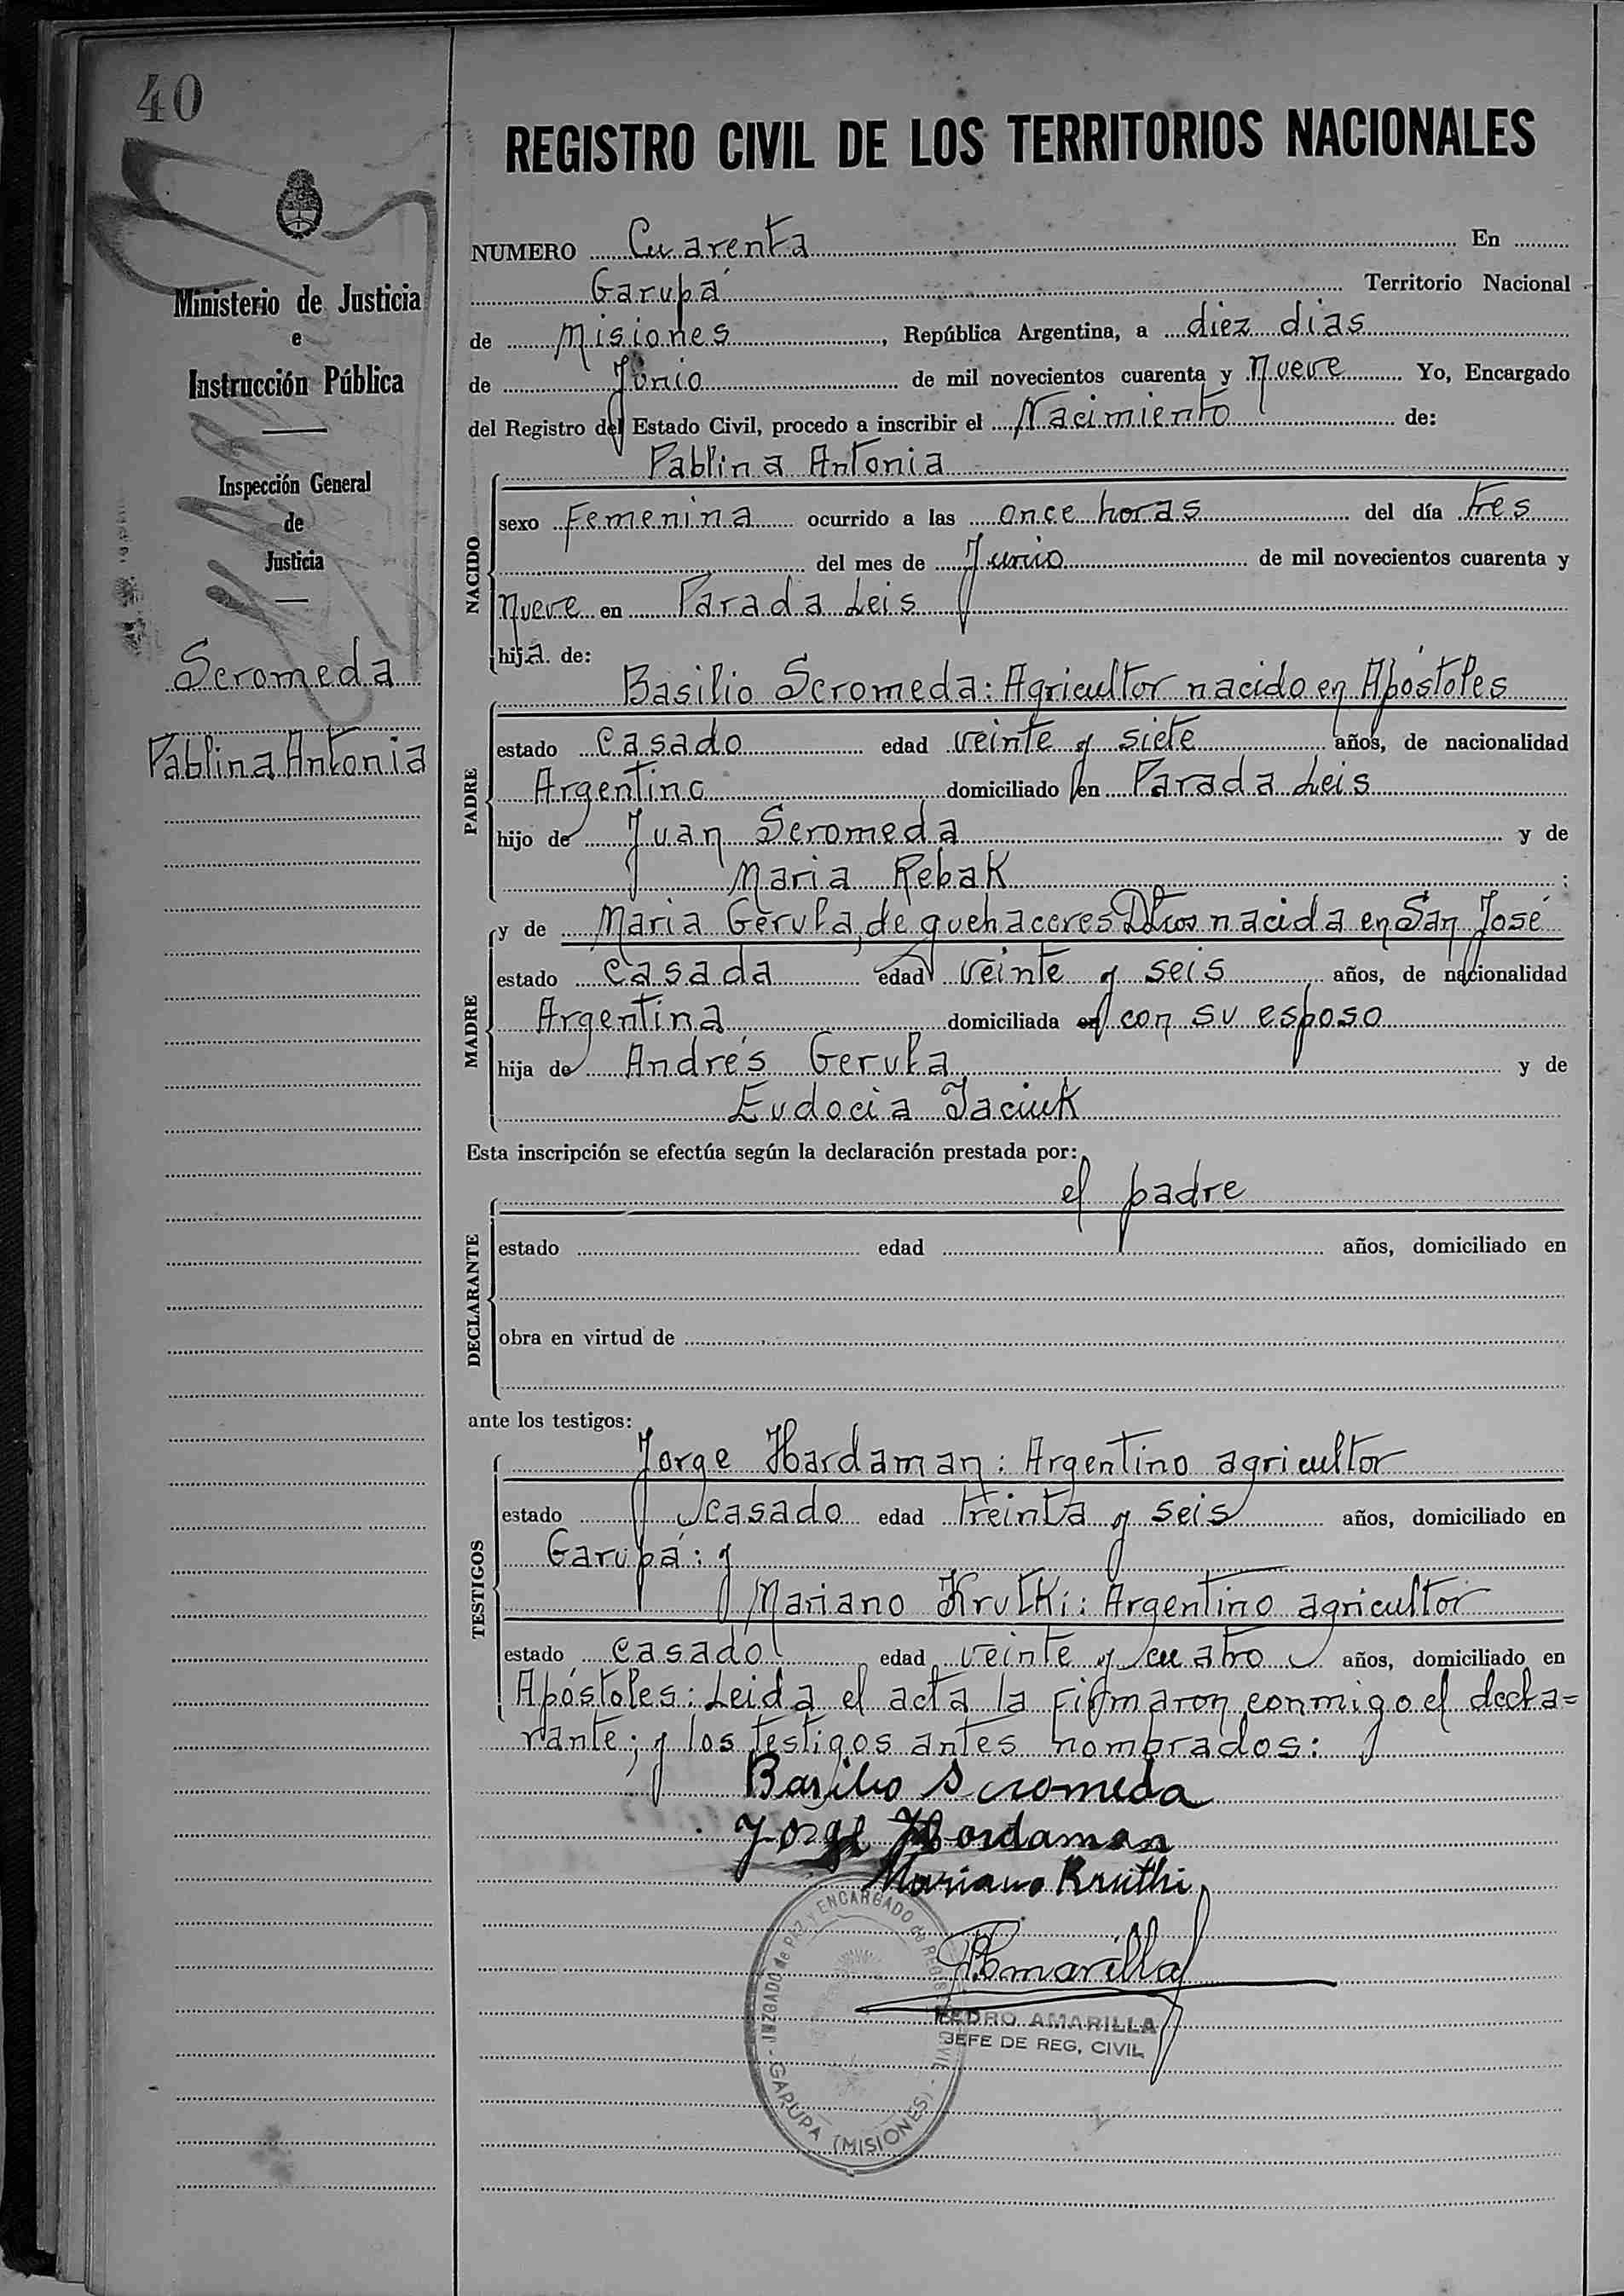 40
REGISTRO CIVIL DE LOS TERRITORIOS NACIONALES
Ministerio de Justicia
e
Instrucción Pública
Inspección General
de
Justicia
Scromeda
Pablina Antonia
NUMERO Cuarenta En
Garupá Territorio Nacional
de Misiones, República Argentina, a diez dias
de Junio de mil novecientos cuarenta y Nueve Yo, Encargado
del Registro del Estado Civil, procedo a inscribir el Nacimiento de:
Pablina Antonia
NACIDO
sexo Femenina ocurrido a las once horas del día tres
del mes de Junio de mil novecientos cuarenta y
Nueve en Parada Leis
hija de:
Basilio Scromeda: Agricultor nacido en Apóstoles
PADRE
estado Casado edad veinte y siete años, de nacionalidad
Argentino domiciliado en Parada Leis
hijo de Juan Scromeda y de
Maria Rebak;
y de Maria Gerula, de quehaceres nacida en San José
MADRE
estado Casada edad veinte y seis años, de nacionalidad
Argentina domiciliada en con su esposo
hija de Andrés Gerula y de
Eudocia Jaciuk
Esta inscripción se efectúa según la declaración prestada por:
el padre
DECLARANTE
estado edad años, domiciliado en
obra en virtud de
ante los testigos:
Jorge Hardaman: Argentino agricultor
TESTIGOS
estado casado edad treinta y seis años, domiciliado en
Garupá: y
Mariano Krutki: Argentino agricultor
estado casado edad veinte y cuatro años, domiciliado en
Apóstoles: Leida el acta la firmaron conmigo el decla=
rante; y los testigos antes nombrados:
Basilio Scromeda
Jorge Hardaman
Mariano Kruthi
PAmarilla
PEDRO AMARILLA
JEFE DE REG. CIVIL
JUZGADO de PAZ y ENCARGADO de REGISTRO CIVIL - GARUPA (MISIONES) -